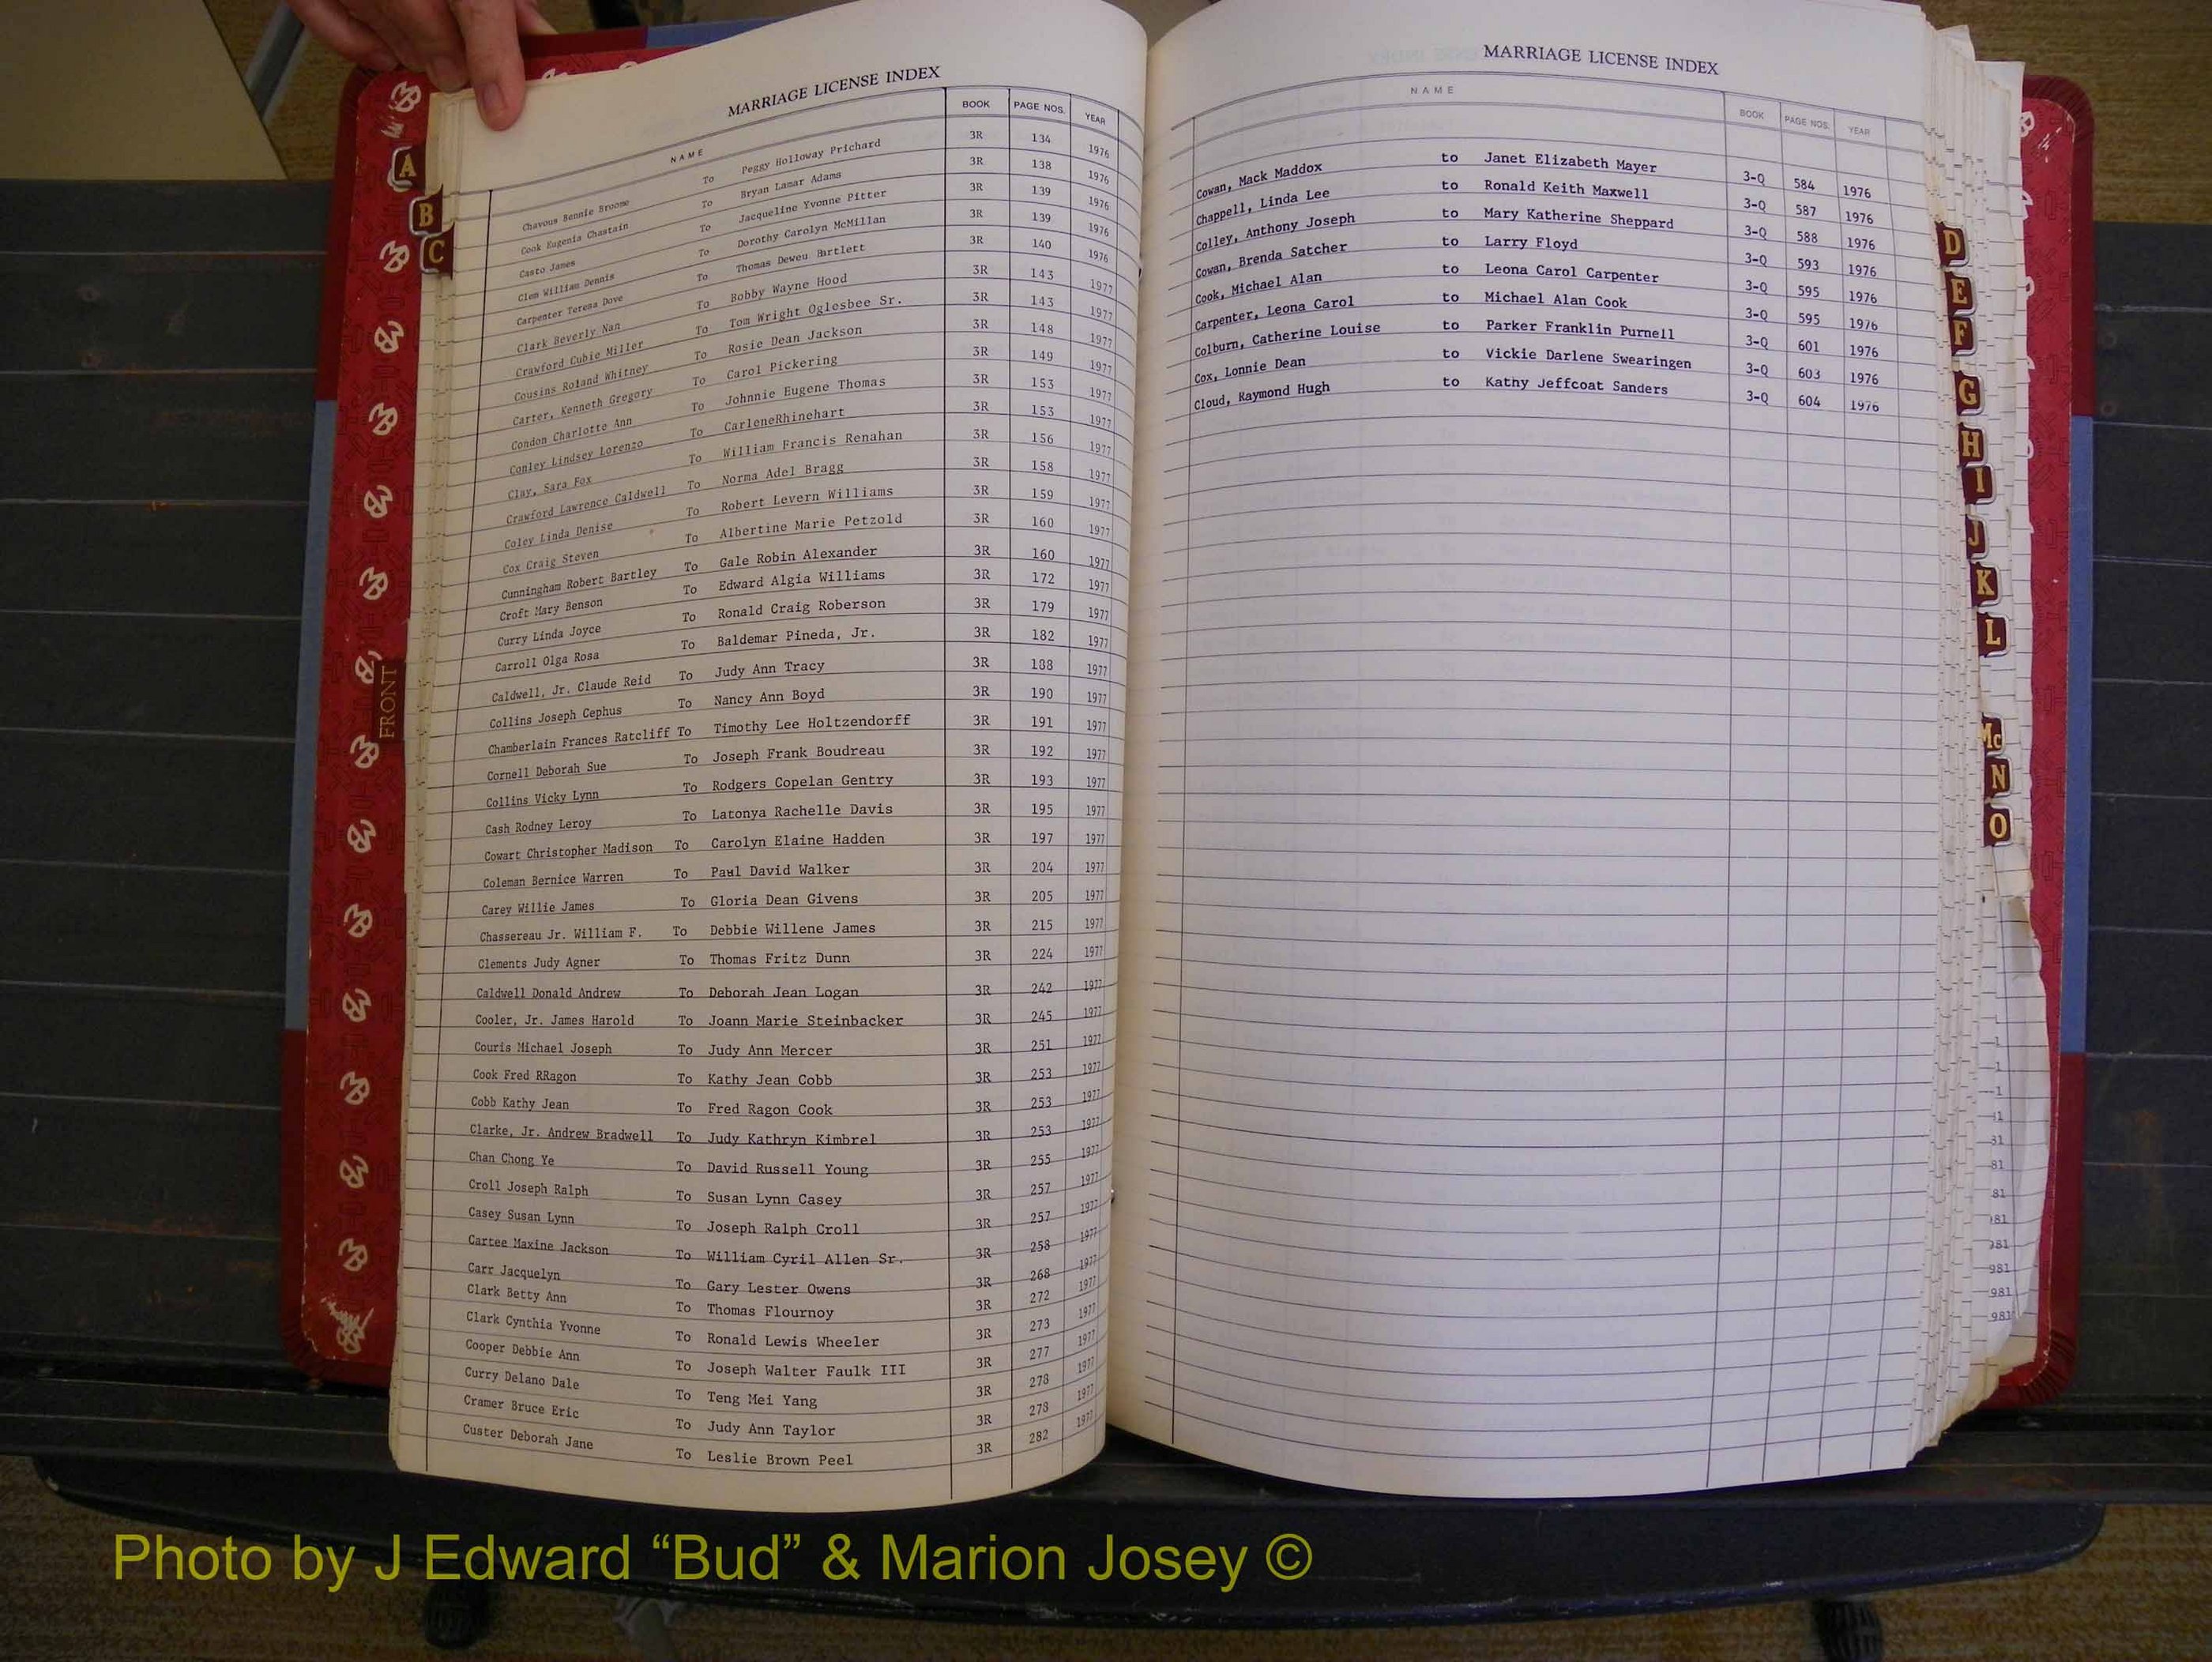 MARRIAGE LICENSE INDEX
NAME BOOK PAGE NOS. YEAR
Chavous Bennie Broome To Peggy Holloway Prichard 3R 134 1976
Cook Eugenia Chastain To Bryan Lamar Adams 3R 138 1976
Casto James To Jacqueline Yvonne Pitter 3R 139 1976
Clem William Dennis To Dorothy Carolyn McMillan 3R 139 1976
Carpenter Teresa Dove To Thomas Deweu Bartlett 3R 140 1976
Clark Beverly Nan To Bobby Wayne Hood 3R 143 1977
Crawford Cubie Miller To Tom Wright Oglesbee Sr. 3R 143 1977
Cousins Roland Whitney To Rosie Dean Jackson 3R 148 1977
Carter, Kenneth Gregory To Carol Pickering 3R 149 1977
Condon Charlotte Ann To Johnnie Eugene Thomas 3R 153 1977
Conley Lindsey Lorenzo To CarleneRhinehart 3R 153 1977
Clay, Sara Fox To William Francis Renahan 3R 156 1977
Crawford Lawrence Caldwell To Norma Adel Bragg 3R 158 1977
Coley Linda Denise To Robert Levern Williams 3R 159 1977
Cox Craig Steven To Albertine Marie Petzold 3R 160 1977
Cunningham Robert Bartley To Gale Robin Alexander 3R 160 1977
Croft Mary Benson To Edward Algia Williams 3R 172 1977
Curry Linda Joyce To Ronald Craig Roberson 3R 179 1977
Carroll Olga Rosa To Baldemar Pineda, Jr. 3R 182 1977
Caldwell, Jr. Claude Reid To Judy Ann Tracy 3R 188 1977
Collins Joseph Cephus To Nancy Ann Boyd 3R 190 1977
Chamberlain Frances Ratcliff To Timothy Lee Holtzendorff 3R 191 1977
Cornell Deborah Sue To Joseph Frank Boudreau 3R 192 1977
Collins Vicky Lynn To Rodgers Copelan Gentry 3R 193 1977
Cash Rodney Leroy To Latonya Rachelle Davis 3R 195 1977
Cowart Christopher Madison To Carolyn Elaine Hadden 3R 197 1977
Coleman Bernice Warren To Paul David Walker 3R 204 1977
Carey Willie James To Gloria Dean Givens 3R 205 1977
Chassereau Jr. William F. To Debbie Willene James 3R 215 1977
Clements Judy Agner To Thomas Fritz Dunn 3R 224 1977
Caldwell Donald Andrew To Deborah Jean Logan 3R 242 1977
Cooler, Jr. James Harold To Joann Marie Steinbacker 3R 245 1977
Couris Michael Joseph To Judy Ann Mercer 3R 251 1977
Cook Fred RRagon To Kathy Jean Cobb 3R 253 1977
Cobb Kathy Jean To Fred Ragon Cook 3R 253 1977
Clarke, Jr. Andrew Bradwell To Judy Kathryn Kimbrel 3R 253 1977
Chan Chong Ye To David Russell Young 3R 255 1977
Croll Joseph Ralph To Susan Lynn Casey 3R 257 1977
Casey Susan Lynn To Joseph Ralph Croll 3R 257 1977
Cartee Maxine Jackson To William Cyril Allen Sr. 3R 258 1977
Carr Jacquelyn To Gary Lester Owens 3R 268 1977
Clark Betty Ann To Thomas Flournoy 3R 272 1977
Clark Cynthia Yvonne To Ronald Lewis Wheeler 3R 273 1977
Cooper Debbie Ann To Joseph Walter Faulk III 3R 277 1977
Curry Delano Dale To Teng Mei Yang 3R 278 1977
Cramer Bruce Eric To Judy Ann Taylor 3R 278 1977
Custer Deborah Jane To Leslie Brown Peel 3R 282 1977
MARRIAGE LICENSE INDEX
NAME BOOK PAGE NOS. YEAR
Cowan, Mack Maddox to Janet Elizabeth Mayer 3-Q 584 1976
Chappell, Linda Lee to Ronald Keith Maxwell 3-Q 587 1976
Colley, Anthony Joseph to Mary Katherine Sheppard 3-Q 588 1976
Cowan, Brenda Satcher to Larry Floyd 3-Q 593 1976
Cook, Michael Alan to Leona Carol Carpenter 3-Q 595 1976
Carpenter, Leona Carol to Michael Alan Cook 3-Q 595 1976
Colburn, Catherine Louise to Parker Franklin Purnell 3-Q 601 1976
Cox, Lonnie Dean to Vickie Darlene Swearingen 3-Q 603 1976
Cloud, Raymond Hugh to Kathy Jeffcoat Sanders 3-Q 604 1976
A
B
C
FRONT
D
E
F
G
H
I
J
K
L
Mc
N
O
Photo by J Edward “Bud” & Marion Josey ©